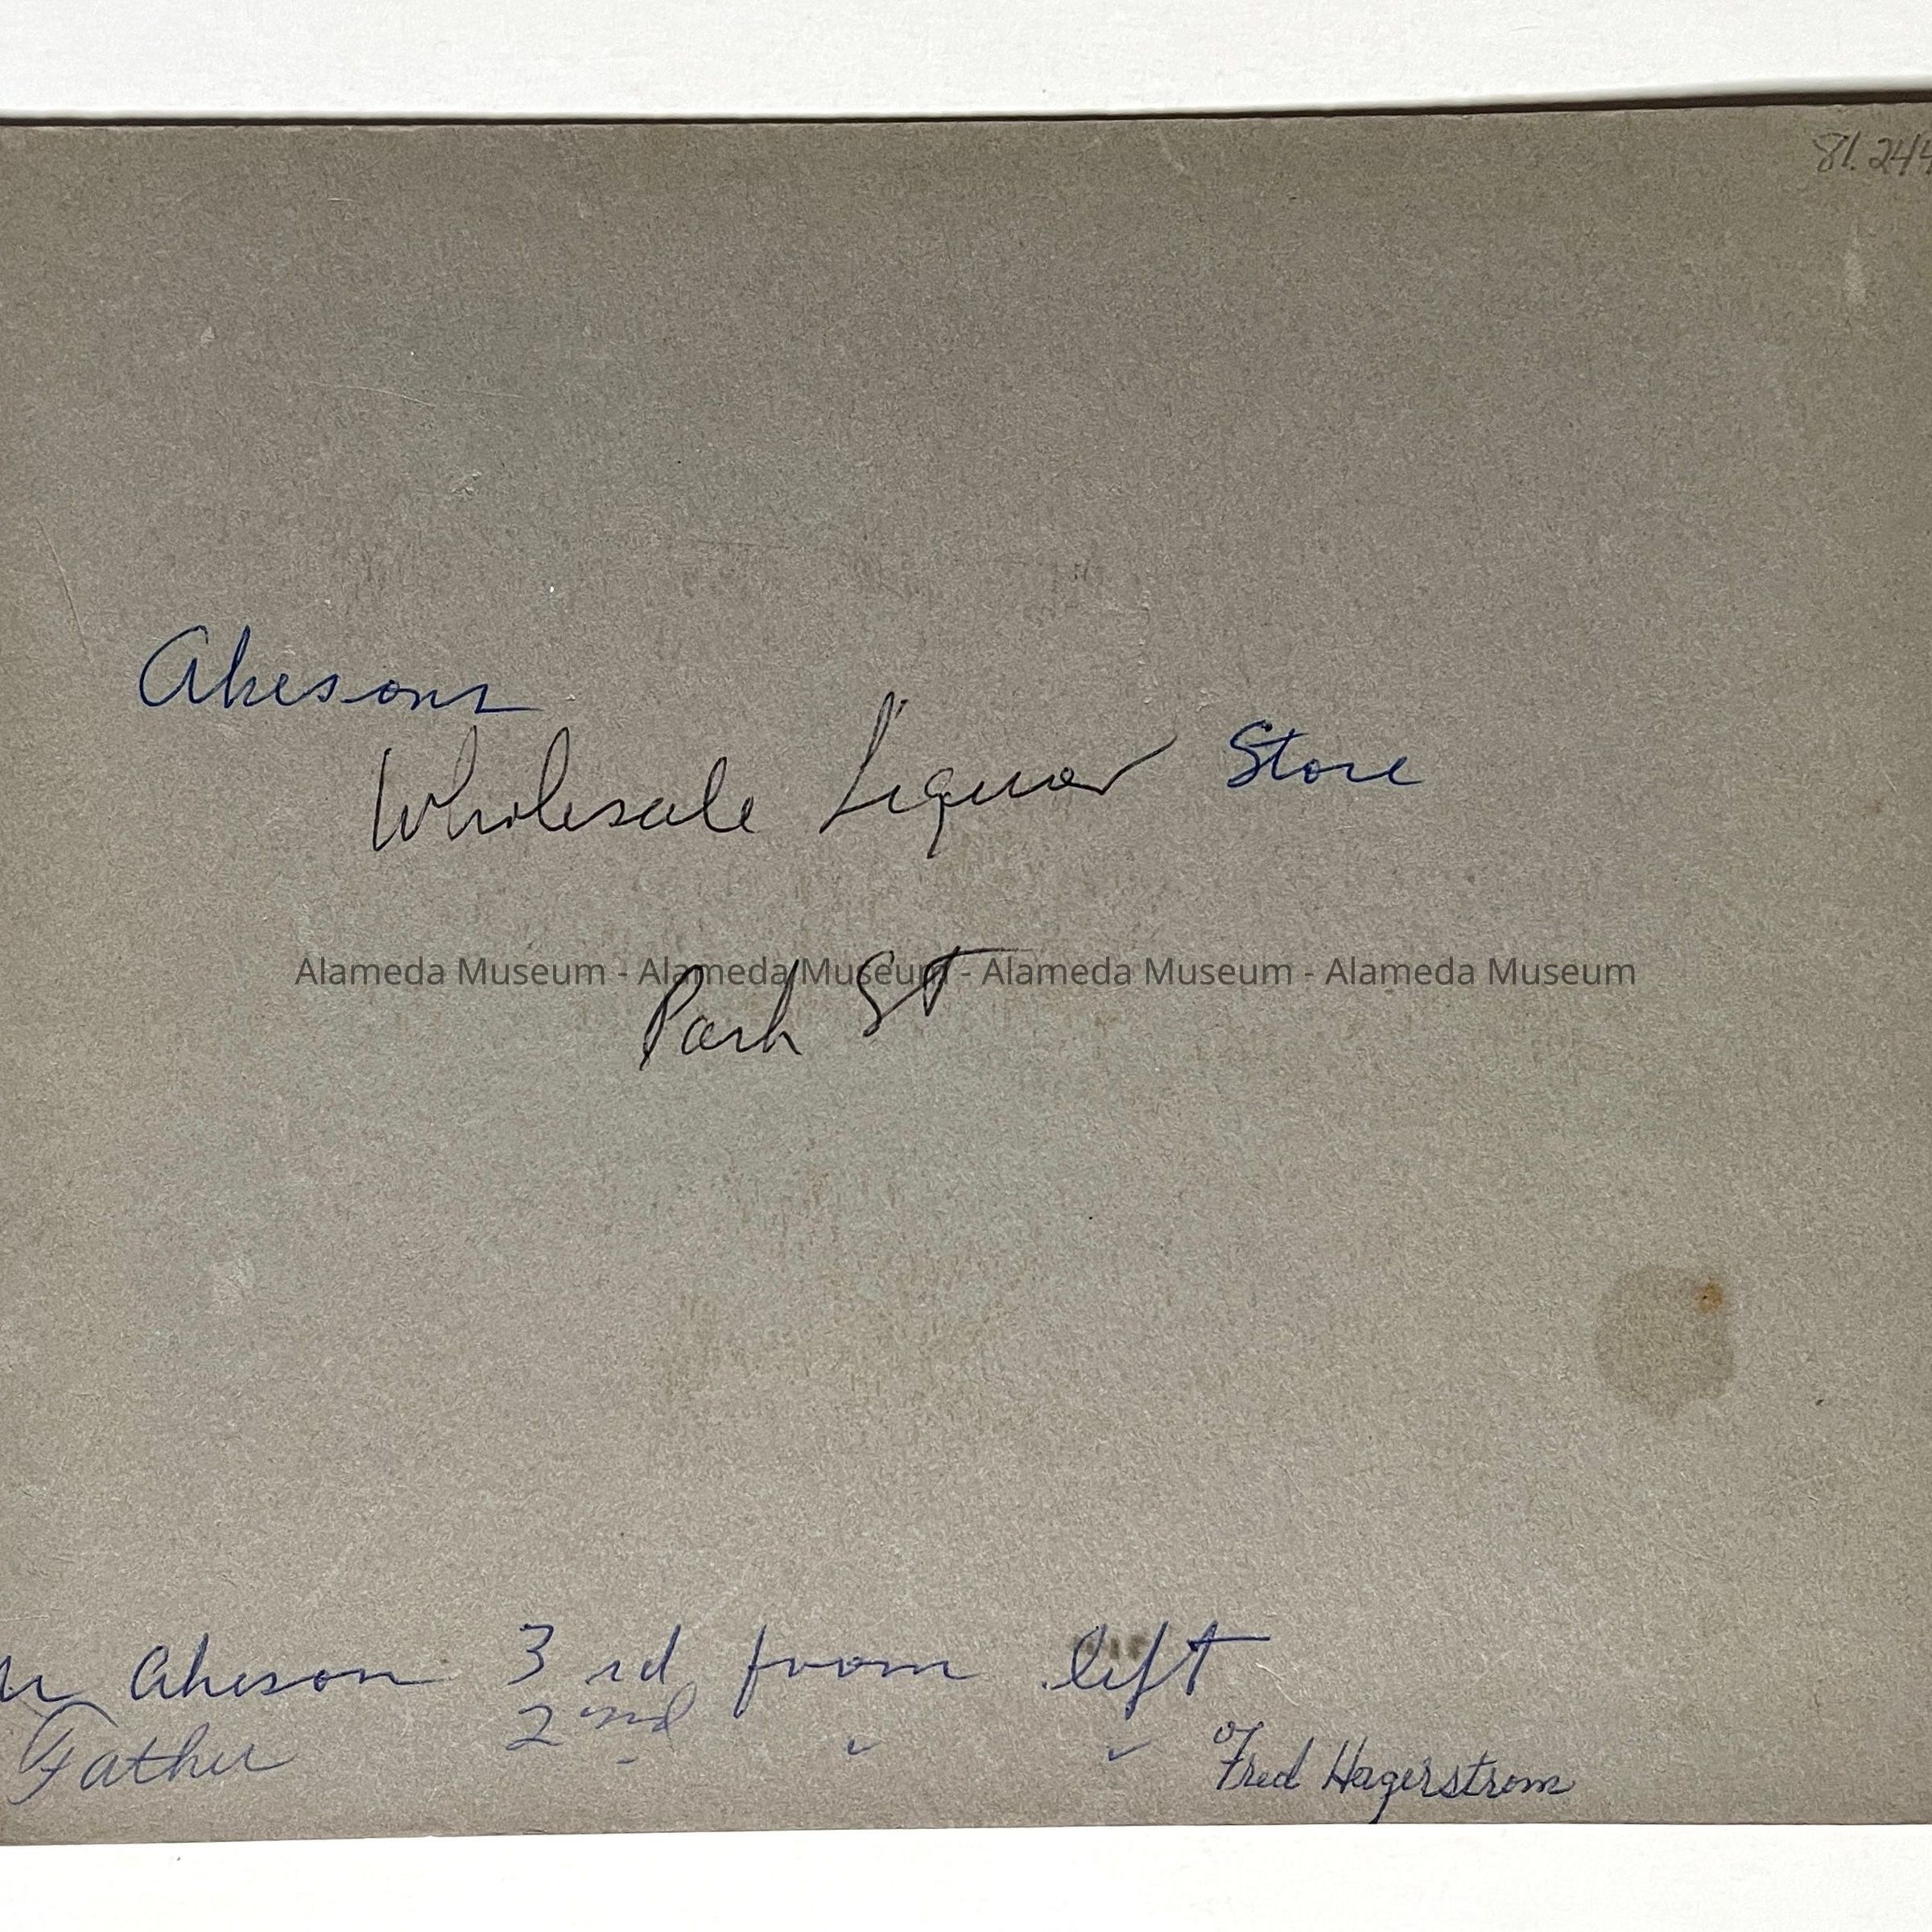 81.244
Akesons
Wholesale Liquor Store
Alameda Museum - Alameda Museum - Alameda Museum - Alameda Museum
Park St
Akeson 3rd from left
Father 2nd " " Fred Hagerstrom